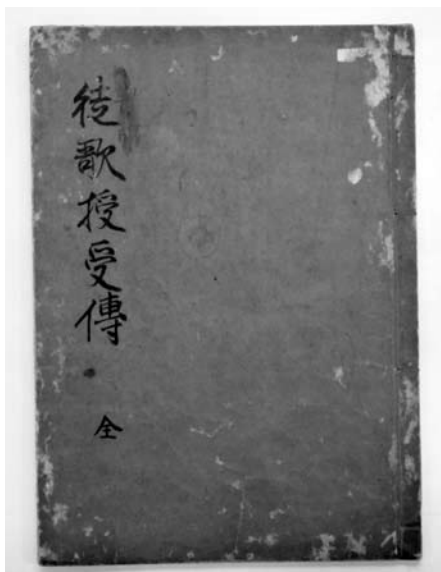 徒歌授受傳
全